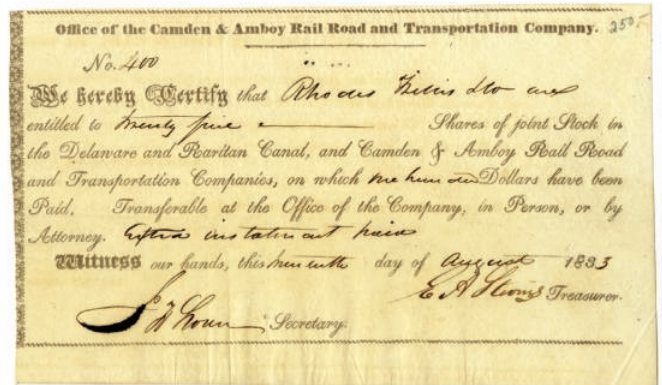 Office of the Camden & Amboy Rail Road and Transportation Company. 250.-
No. 400
We hereby Certify that Rhodes
entitled to twenty five Shares of joint Stock in
the Delaware and Raritan Canal, and Camden & Amboy Rail Road
and Transportation Companies, on which one hundred Dollars have been
Paid, Transferable at the Office of the Company, in Person, or by
Attorney. instalment paid
Witness our hands, this day of August 1833
E A Stevens Treasurer.
Secretary.